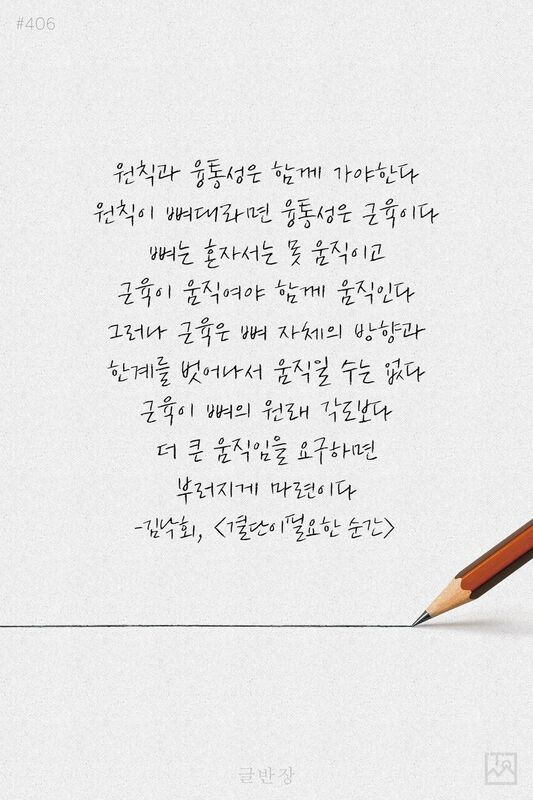 #406
원칙과 융통성은 함께 가야한다
원칙이 뼈대라면 융통성은 근육이다
뼈는 혼자서는 못 움직이고
근육이 움직여야 함께 움직인다
그러나 근육은 뼈 자체의 방향과
한계를 벗어나서 움직일 수는 없다
근육이 뼈의 원래 각도보다
더 큰 움직임을 요구하면
부러지게 마련이다
-김낙회, <결단이필요한 순간>
글반장